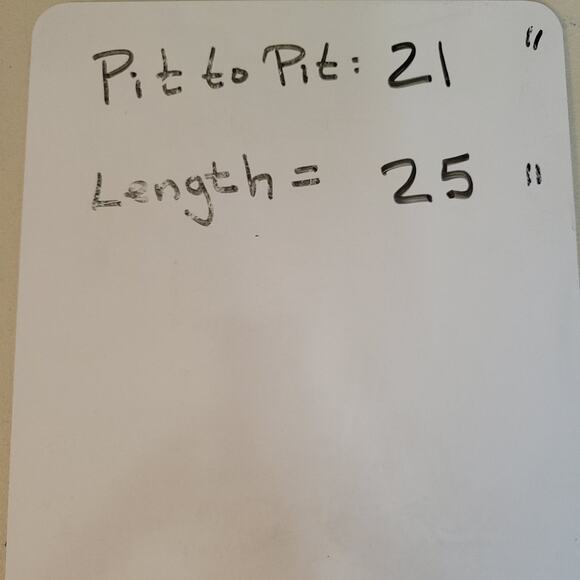 Pit to Pit: 21 "
Length = 25 "